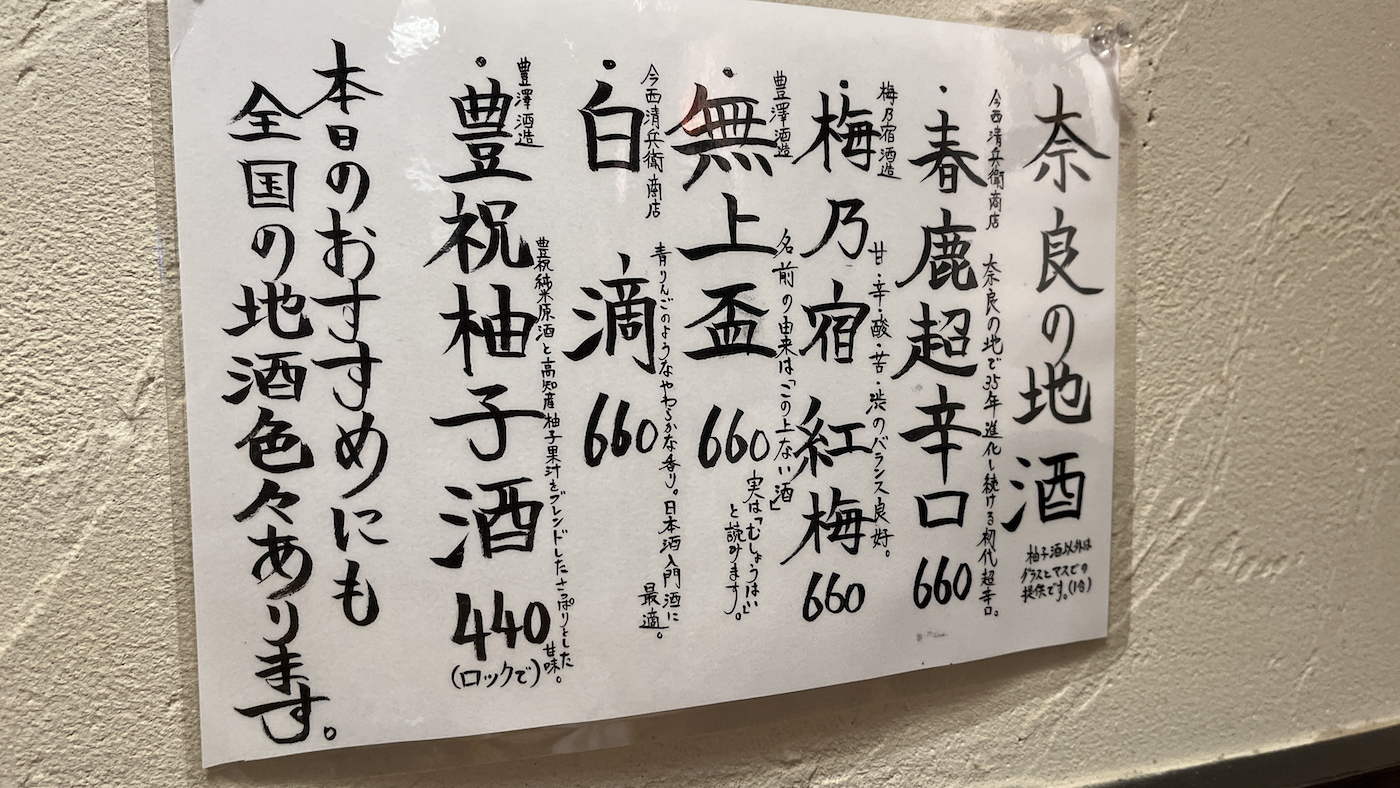 奈良の地酒
柚子酒以外は
グラスとマスでの
提供です。(1合)
今西清兵衛商店
奈良の地で35年進化し続ける初代超辛口。
・春鹿超辛口 660
梅乃宿酒造
甘・辛・酸・苦・渋のバランス良好。
・梅乃宿 紅梅 660
豊澤酒造
名前の由来は「この上ない酒」
実は「むしょうはい」
と読みます。
・無上盃 660
今西清兵衛商店
青りんごのようなやわらかな香り。日本酒入門酒に
最適。
・白滴 660
豊澤酒造
豊祝純米原酒と高知産柚子果汁をブレンドしたさっぱりとした
甘味。
・豊祝柚子酒 440
(ロックで)
本日のおすすめにも
全国の地酒色々あります。